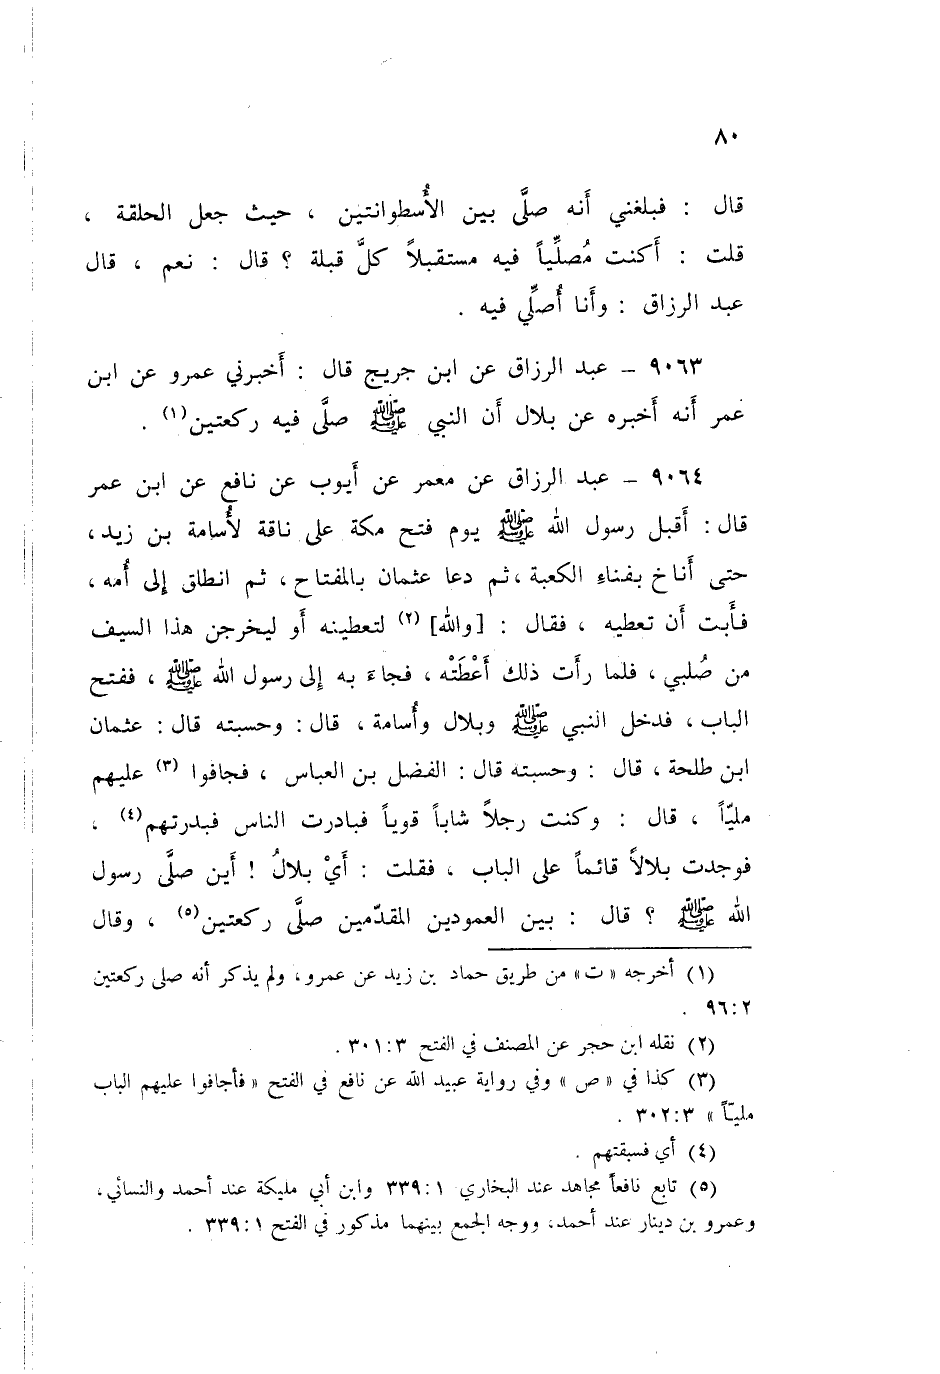 ٨٠
قال : فبلغني أَنه صلَّى بين الأُسطوانتين ، حيث جعل الحلقة ،
قلت : أَكنت مُصلِّياً فيه مستقبلاً كلَّ قبلة ؟ قال : نعم ، قال
عبد الرزاق : وأَنا أُصلِّي فيه .
٩٠٦٣ – عبد الرزاق عن ابن جريج قال : أَخبرني عمرو عن ابن
عمر أَنه أَخبره عن بلال أَن النبي ﷺ صلَّى فيه ركعتين(١) .
٩٠٦٤ – عبد الرزاق عن معمر عن أَيوب عن نافع عن ابن عمر
قال : أَقبل رسول الله ﷺ يوم فتح مكة على ناقة لأُسامة بن زيد ،
حتى أَناخ بفناء الكعبة ، ثم دعا عثمان بالمفتاح ، ثم انطلق إلى أُمه ،
فأَبت أَن تعطيه ، فقال : [والله](٢) لتعطينه أَو ليخرجن هذا السيف
من صُلبي ، فلما رأَت ذلك أَعْطَتْه ، فجاءَ به إلى رسول الله ﷺ ، ففتح
الباب ، فدخل النبي ﷺ وبلال وأُسامة ، قال : وحسبته قال : عثمان
ابن طلحة ، قال : وحسبته قال : الفضل بن العباس ، فجافوا (٣) عليهم
مليّاً ، قال : وكنت رجلاً شاباً قوياً فبادرت الناس فبدرتهم(٤) ،
فوجدت بلالاً قائماً على الباب ، فقلت : أَيْ بلالُ ! أَين صلَّى رسول
الله ﷺ ؟ قال : بين العمودين المقدّمين صلَّى ركعتين(٥) ، وقال
(١) أخرجه « ت » من طريق حماد بن زيد عن عمرو، ولم يذكر أنه صلى ركعتين
٩٦:٢ .
(٢) نقله ابن حجر عن المصنف في الفتح ٣٠١:٣ .
(٣) كذا في « ص » وفي رواية عبيد الله عن نافع في الفتح « فأجافوا عليهم الباب
مليـّاً » ٣٠٢:٣ .
(٤) أي فسبقتهم .
(٥) تابع نافعاً مجاهد عند البخاري ٣٣٩:١ وابن أبي مليكة عند أحمد والنسائي،
وعمرو بن دينار عند أحمد، ووجه الجمع بينهما مذكور في الفتح ٣٣٩:١ .